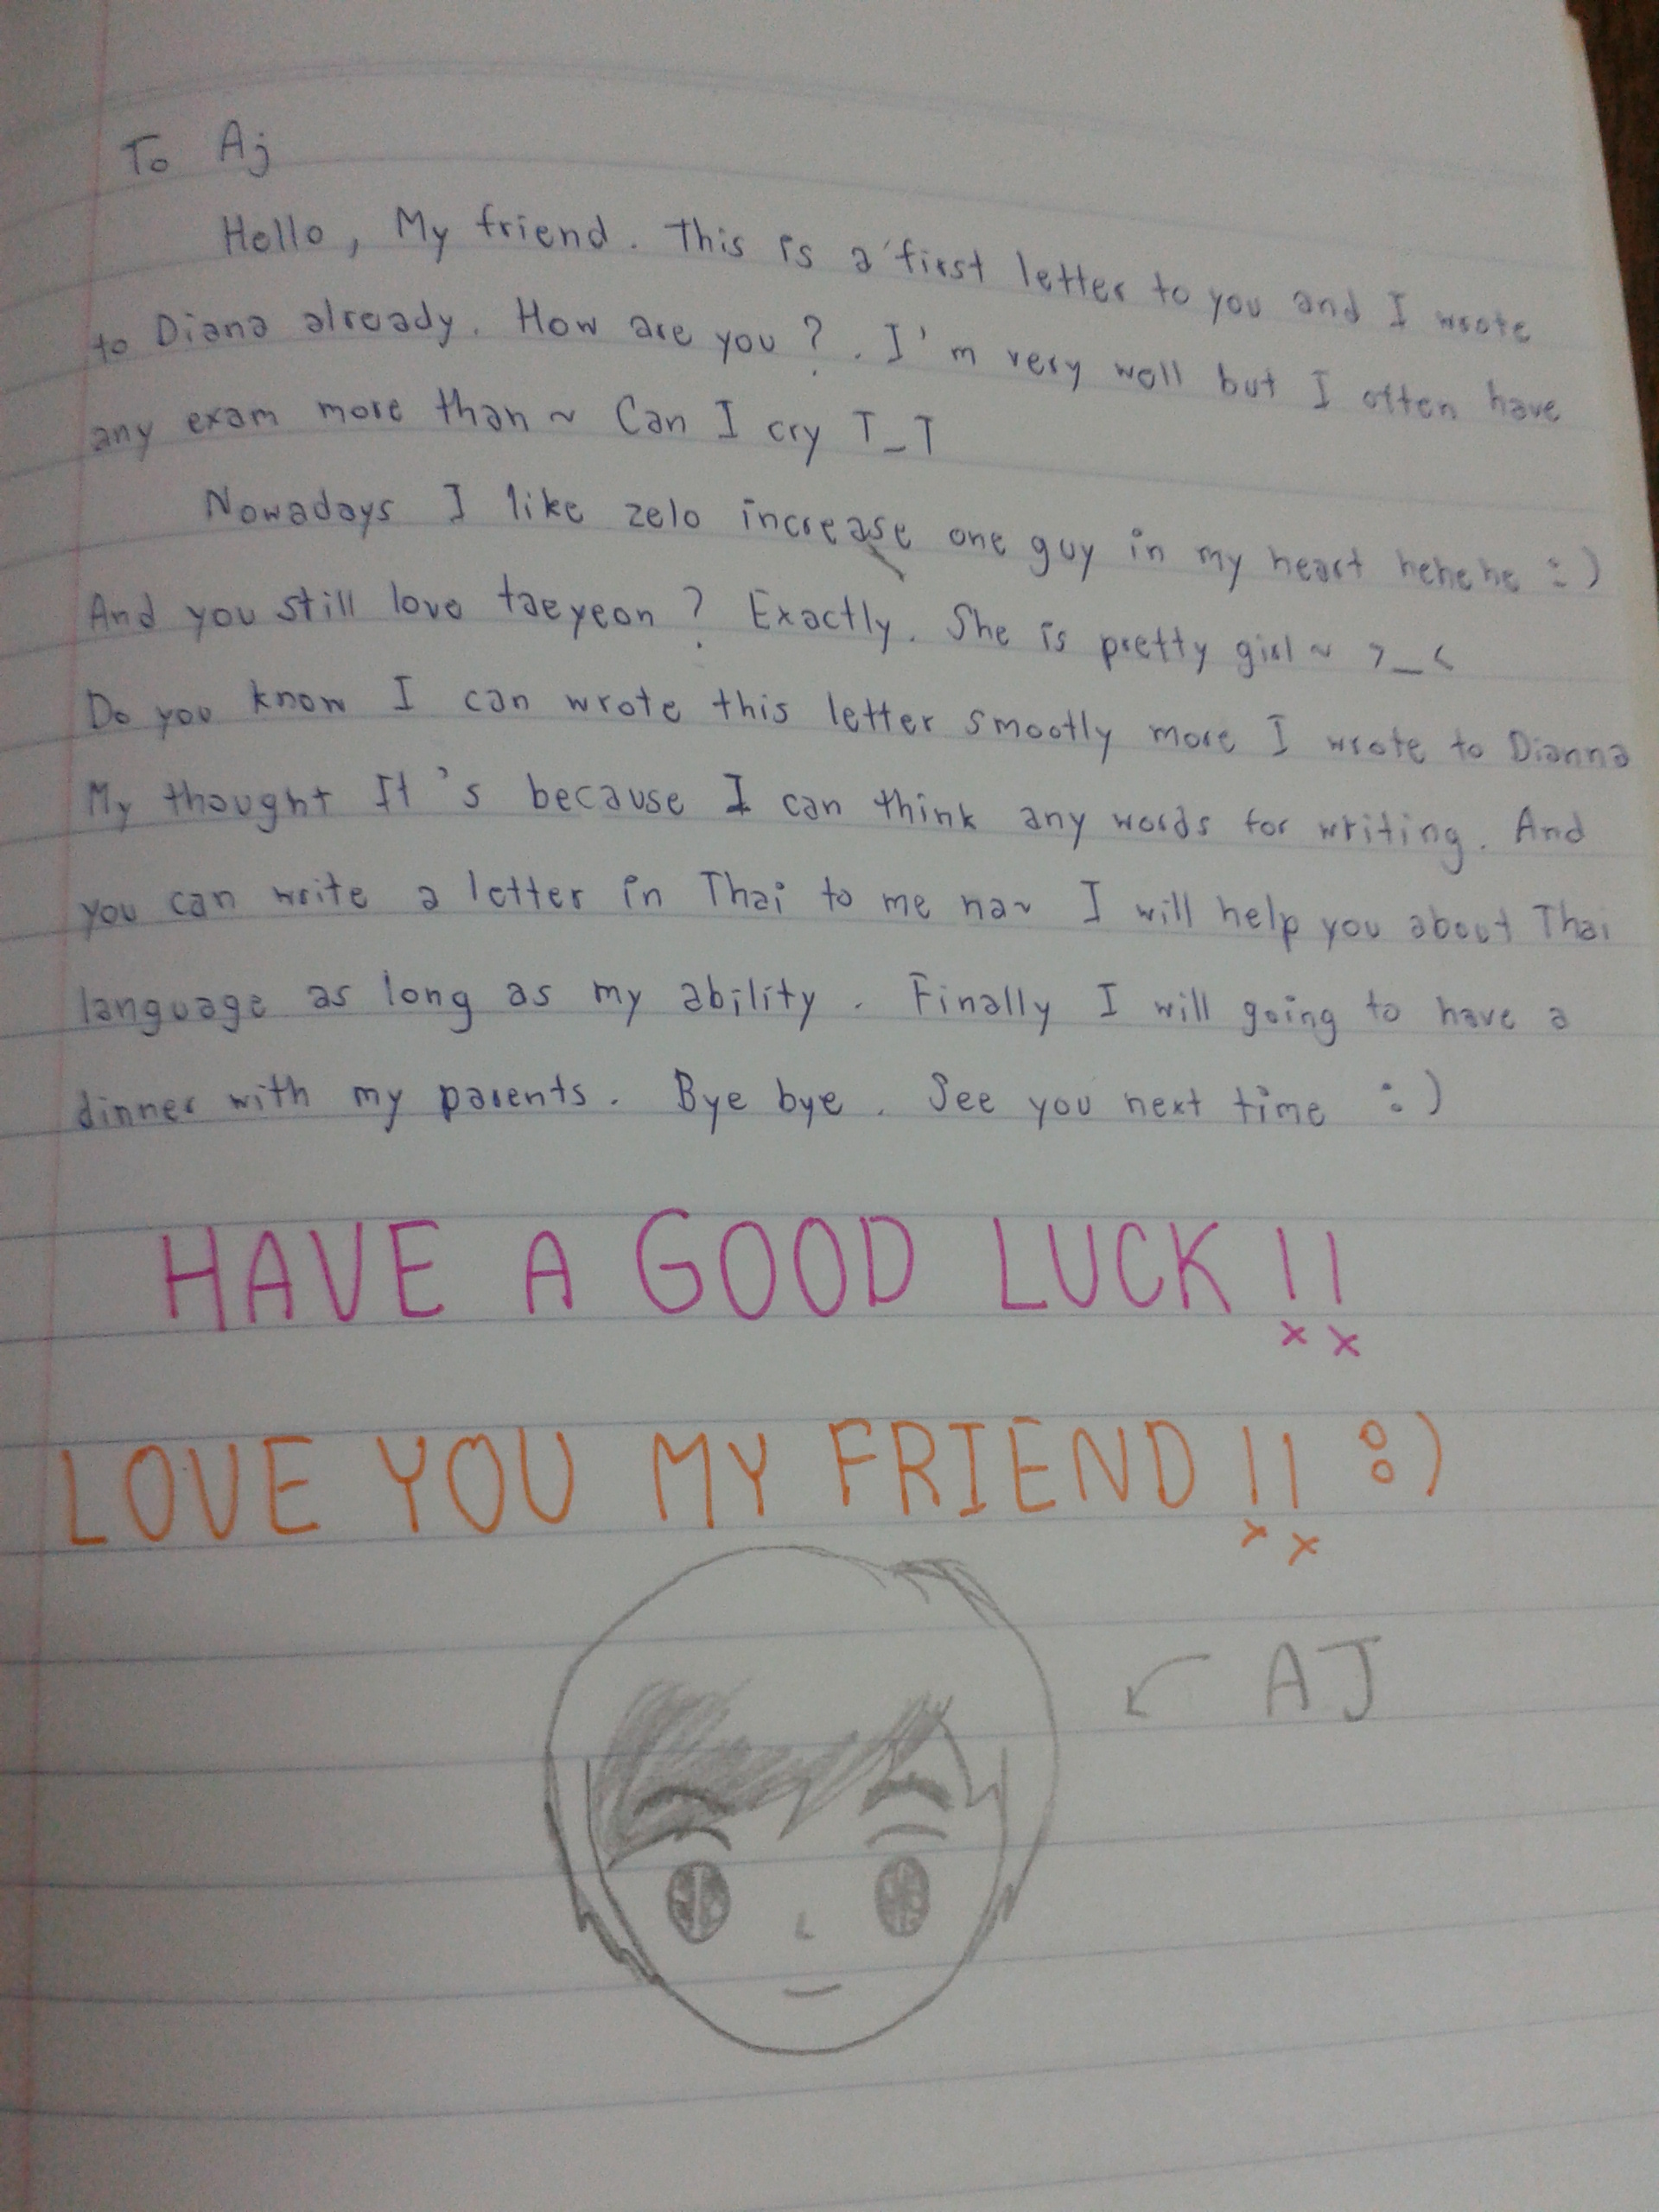 To Aj
Hello, My friend. This is a first letter to you and I wrote
to Diana already. How are you?. I'm very well but I often have
any exam more than ~ Can I cry T_T
Nowadays I like zelo increase one guy in my heart hehehe :)
And you still love taeyeon? Exactly. She is pretty girl ~ >_<
Do you know I can wrote this letter smootly more I wrote to Dianna
My thought It's because I can think any words for writing. And
you can write a letter in Thai to me na~ I will help you about Thai
language as long as my ability. Finally I will going to have a
dinner with my parents. Bye bye. See you next time :)
HAVE A GOOD LUCK !!
LOVE YOU MY FRIEND !! :)
AJ